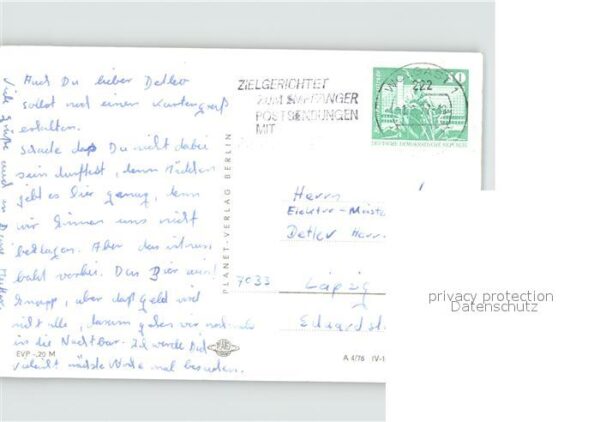 Auch Du lieber Detlev
sollst noch einen Kartengruß
erhalten.
schade daß Du nicht dabei
sein durftest, denn Mädchen
gibt es hier genug, denn
wir können uns nicht
beklagen. Aber das ist nun
bald vorbei. Das Bier wird
knapp, aber das Geld wird
nicht alle, darum gehen wir
in die Nachtbar. Ich werde Dich
vielleicht nächste Woche mal besuchen.
Viele Grüße auch an Deine Mutter
EVP -,20 M
PLANET-VERLAG BERLIN
ZIELGERICHTET
ZUM EMPFÄNGER
POSTSENDUNGEN
MIT
WOLGAST 1
222
10
DEUTSCHE DEMOKRATISCHE REPUBLIK
Herrn
Elektro-Meister
Detlev Herr
7033 Leipzig
Eduardst.
A 4/76 IV-1
privacy protection
Datenschutz